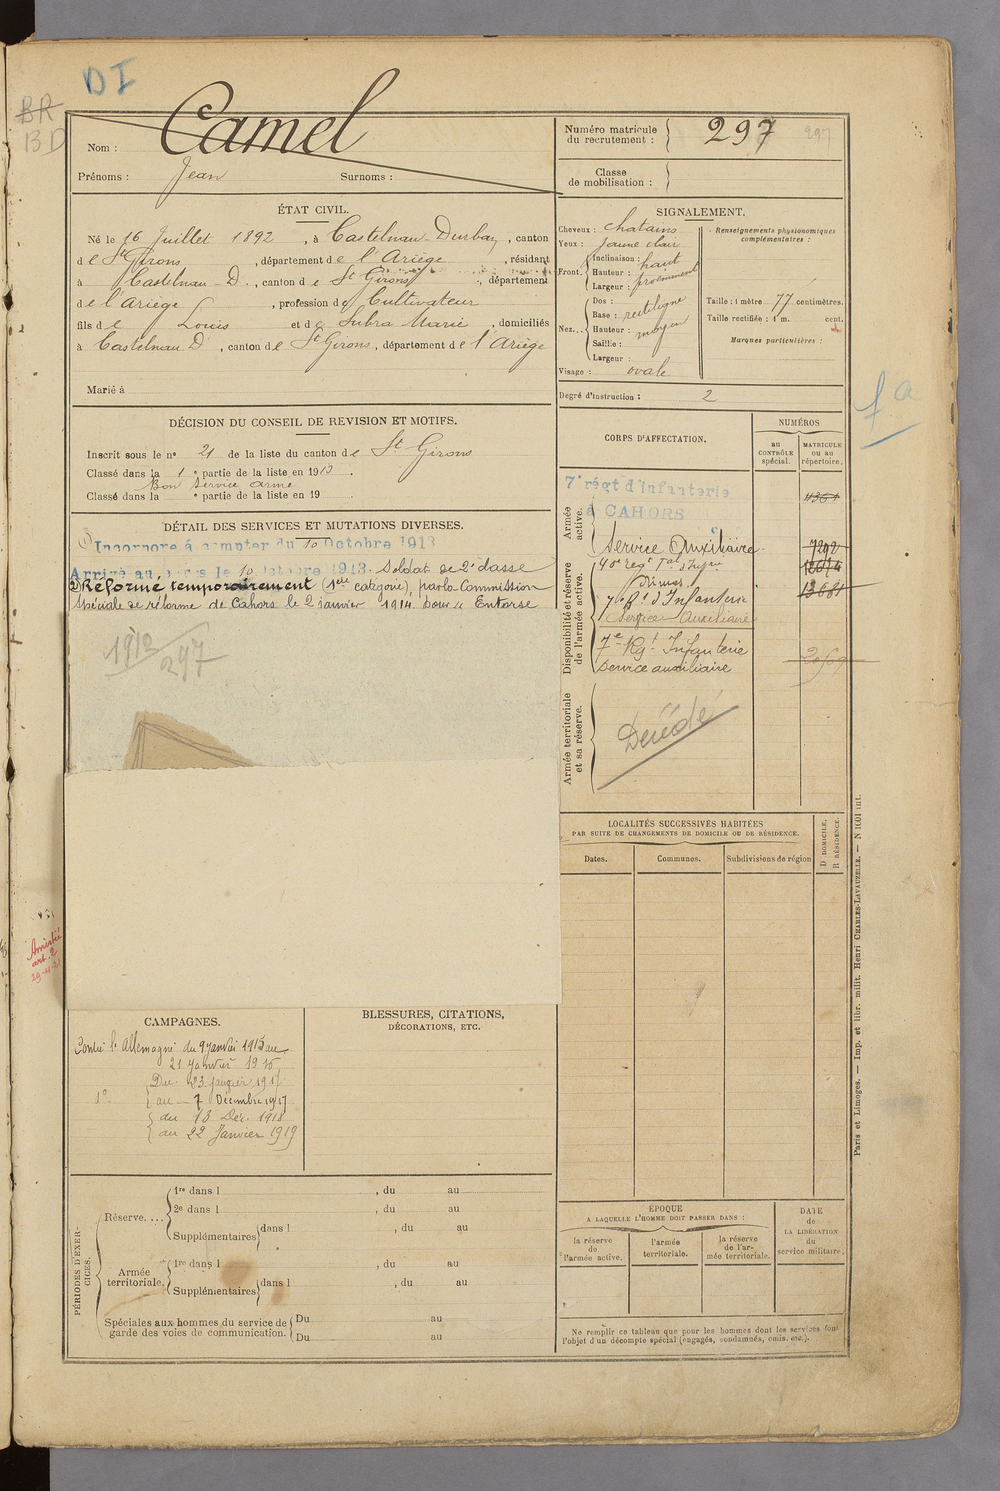 DI
BR
BD
Nom : Camel
Prénoms : Jean Surnoms :
Numéro matricule du recrutement : 297 297
Classe de mobilisation :
ÉTAT CIVIL.
Né le 16 Juillet 1892, à Castelnau-Durban, canton
de St Girons, département de l'Ariège, résidant
à Castelnau-D., canton de St Girons, département
de l'Ariège, profession de Cultivateur
fils de Louis et de Subra Marie, domiciliés
à Castelnau D., canton de St Girons, département de l'Ariège
Marié à
SIGNALEMENT.
Cheveux : chatains
Yeux : jaune clair
Front. Inclinaison : haut
Hauteur : proéminent
Largeur :
Nez... Dos : rectiligne
Base :
Hauteur : moyen
Saillie :
Largeur :
Visage : ovale
Renseignements physionomiques complémentaires :
Taille : 1 mètre 77 centimètres.
Taille rectifiée : 1 m. cent.
Marques particulières :
Degré d'instruction : 2
DÉCISION DU CONSEIL DE REVISION ET MOTIFS.
Inscrit sous le no 21 de la liste du canton de St Girons
Classé dans la 1e partie de la liste en 1913.
Bon service armé
Classé dans la e partie de la liste en 19
DÉTAIL DES SERVICES ET MUTATIONS DIVERSES.
Incorporé à compter du 10 Octobre 1913
Arrivé au corps le 10 Octobre 1913. Soldat de 2e classe
2) Réformé temporairement (1ère catégorie), par la Commission
Spéciale de réforme de Cahors le 2 janvier 1914 pour "Entorse
1912
297
CORPS D'AFFECTATION.
NUMÉROS
au CONTRÔLE spécial.
MATRICULE ou au répertoire.
Armée active.
7e régt d'Infanterie
à CAHORS
4361
Service Auxiliaire
7292
Disponibilité et réserve de l'armée active.
7e Rgt d'Infanterie
Service Auxiliaire
13681
7e Rgt Infanterie
service auxiliaire
Armée territoriale et sa réserve.
Décédé
fa
LOCALITÉS SUCCESSIVES HABITÉES
PAR SUITE DE CHANGEMENTS DE DOMICILE OU DE RÉSIDENCE.
Dates. Communes. Subdivisions de région
D DOMICILE.
R RÉSIDENCE.
Amnistié
art. 2
CAMPAGNES.
Contre l'Allemagne du 9 janvier 1915 au
21 janvier 1915
Du 23 janvier 1917
1° au 7 Décembre 1917
du 13 Déc. 1918
au 22 Janvier 1919
BLESSURES, CITATIONS,
DÉCORATIONS, ETC.
PÉRIODES D'EXERCICES.
Réserve.... 1re dans l , du au
2e dans l , du au
Supplémentaires dans l , du au
Armée territoriale. 1re dans l , du au
Supplémentaires dans l , du au
Spéciales aux hommes du service de garde des voies de communication. Du au
Du au
ÉPOQUE
A LAQUELLE L'HOMME DOIT PASSER DANS :
la réserve de l'armée active.
l'armée territoriale.
la réserve de l'armée territoriale.
DATE
de
LA LIBÉRATION
du
service militaire.
Ne remplir ce tableau que pour les hommes dont les services font
l'objet d'un décompte spécial (engagés, condamnés, omis, etc.).
Paris et Limoges. — Imp. et libr. milit. Henri CHARLES-LAVAUZELLE. — N 1601 int.